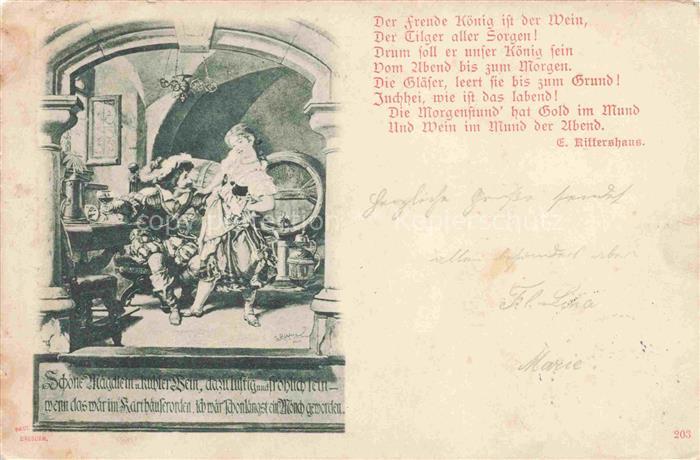 Der Freude König ist der Wein,
Der Tilger aller Sorgen!
Drum soll er unser König sein
Vom Abend bis zum Morgen.
Die Gläser, leert sie bis zum Grund!
Juchhei, wie ist das labend!
Die Morgenstund' hat Gold im Mund
Und Wein im Mund der Abend.
E. Rittershaus.
Herzliche Grüße sendet
allen besonders aber
Frl. Lora
Marie.
Schöne Mägdlein u. kühler Wein, dazu lustig und fröhlich sein –
wenn das wär im Karthäuserorden, ich wär schon längst ein Mönch geworden.
DRESDEN.
203
Kopierschutz